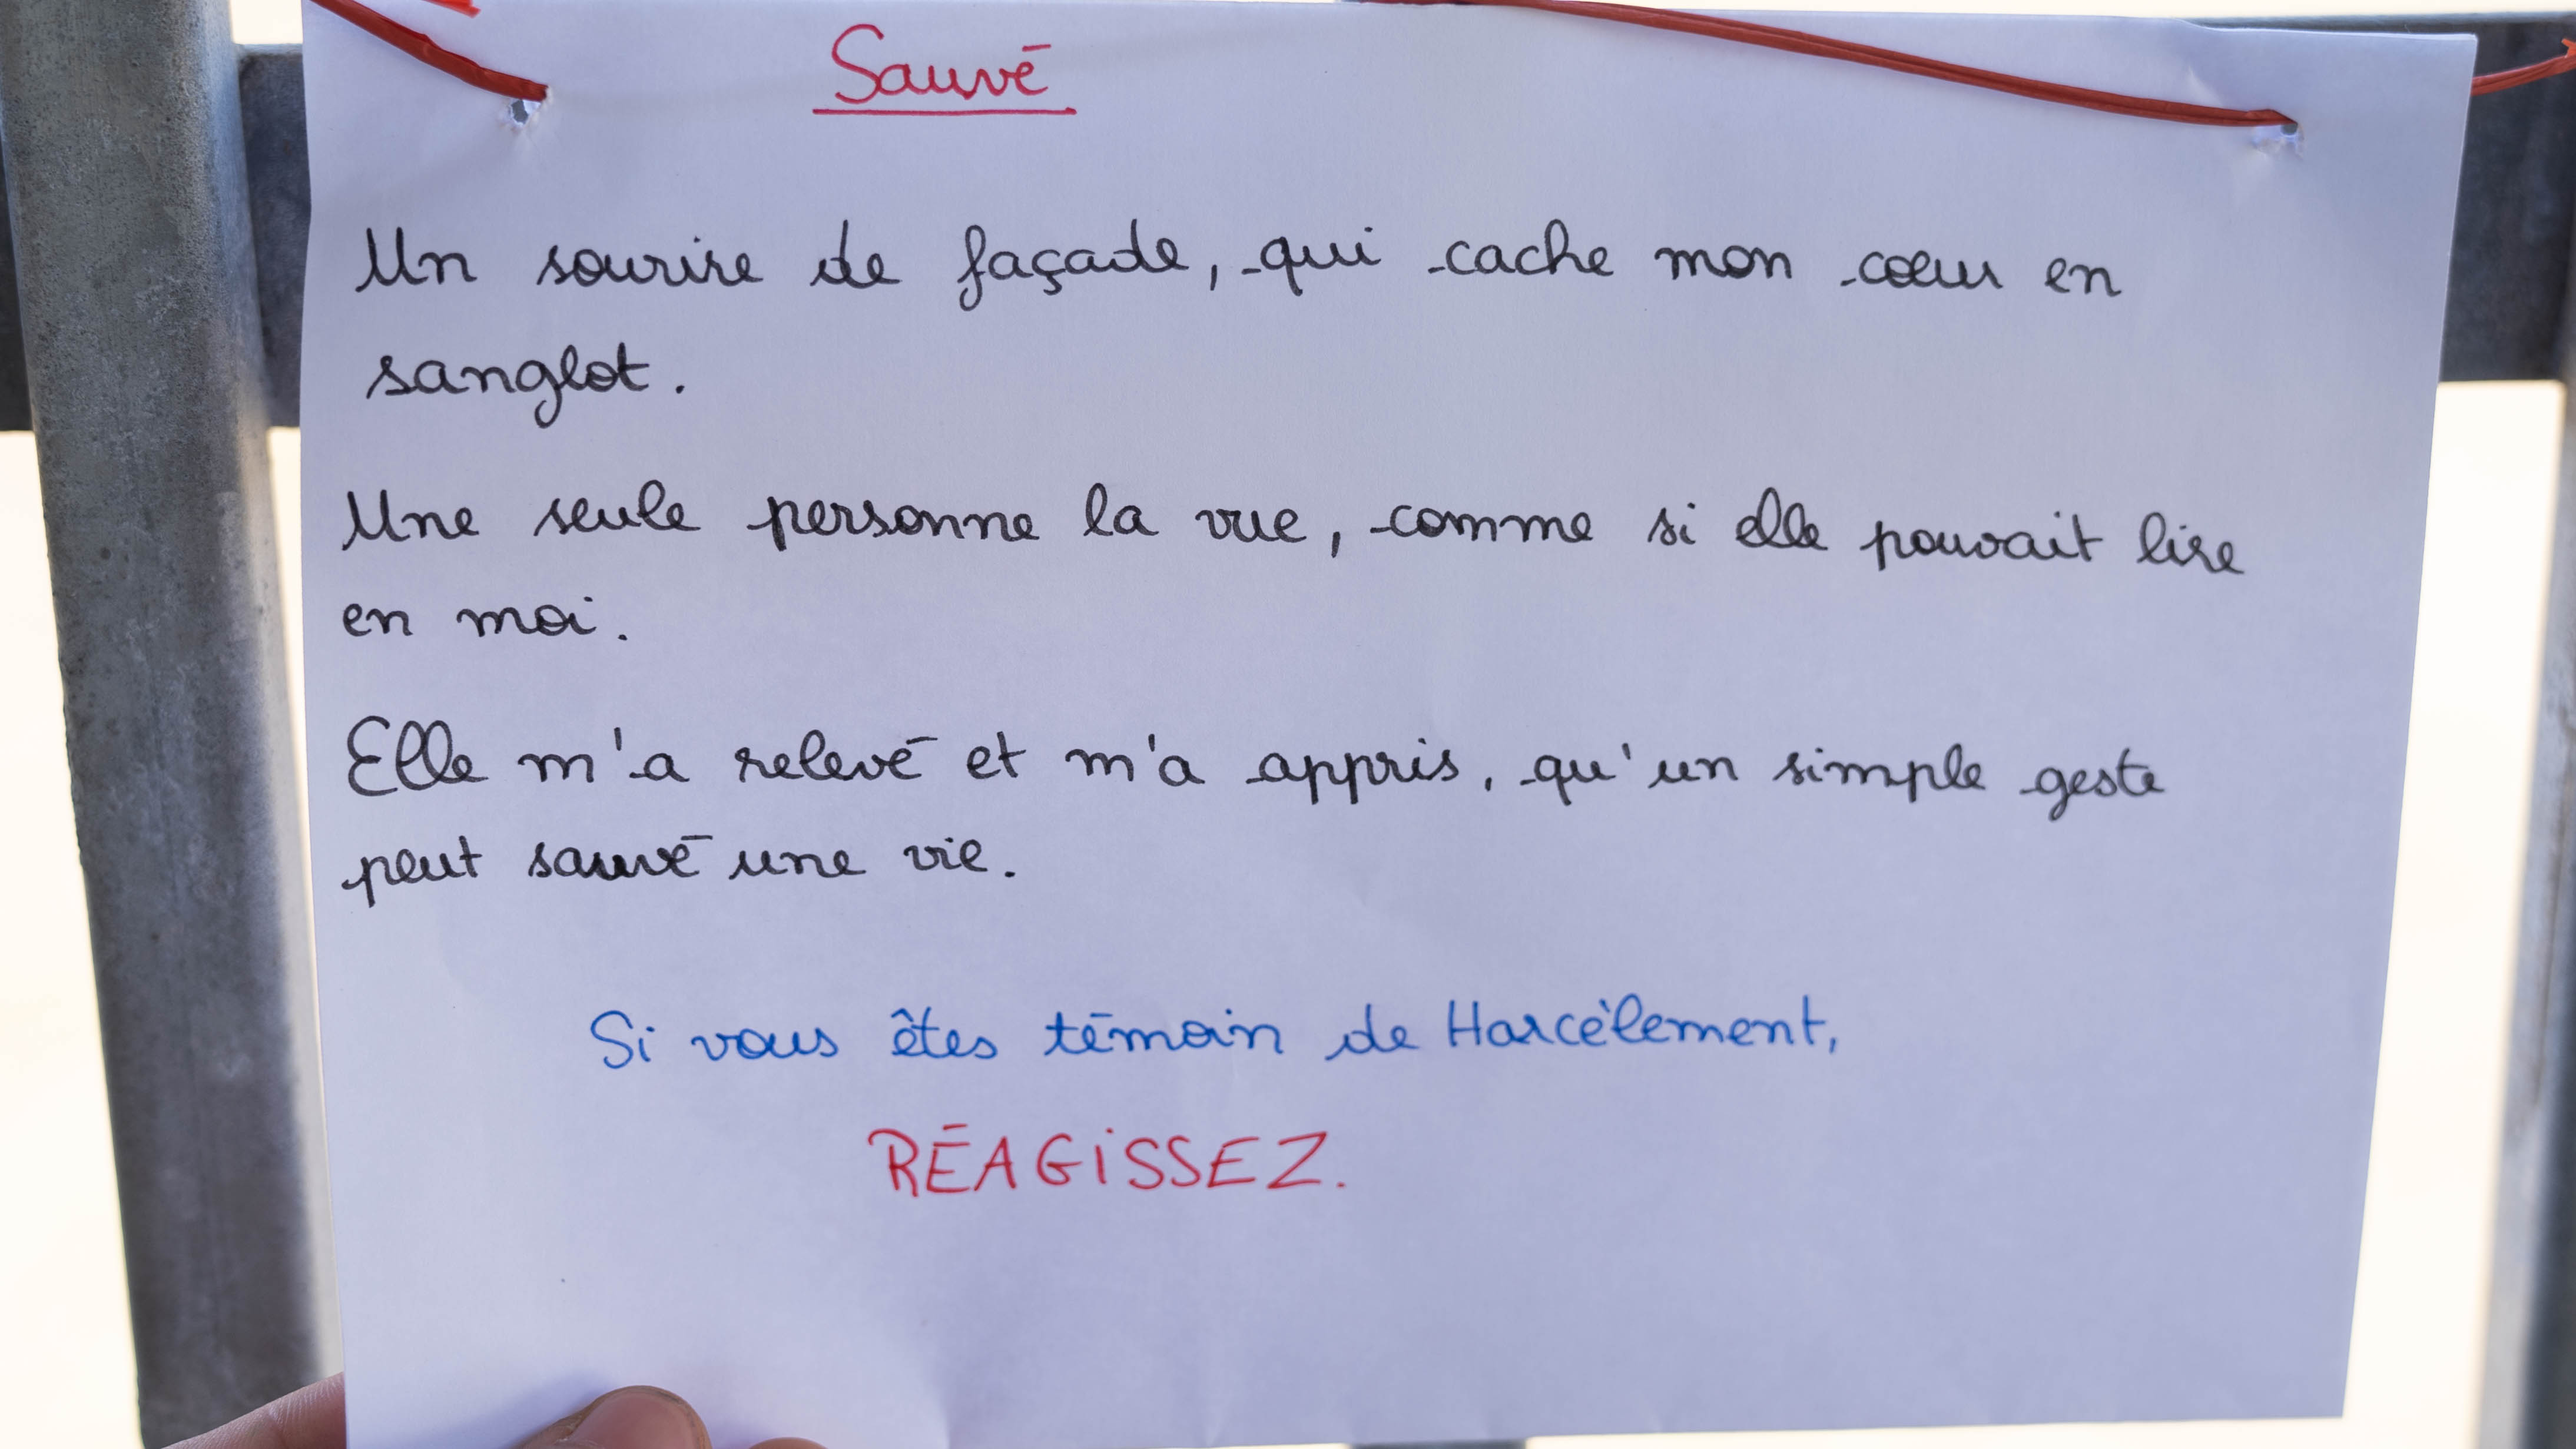 Sauvé
Un sourire de façade, qui cache mon cœur en
sanglot.
Une seule personne la vue, comme si elle pouvait lire
en moi.
Elle m'a relevé et m'a appris, qu'un simple geste
peut sauvé une vie.
Si vous êtes témoin de Harcèlement,
RÉAGISSEZ.